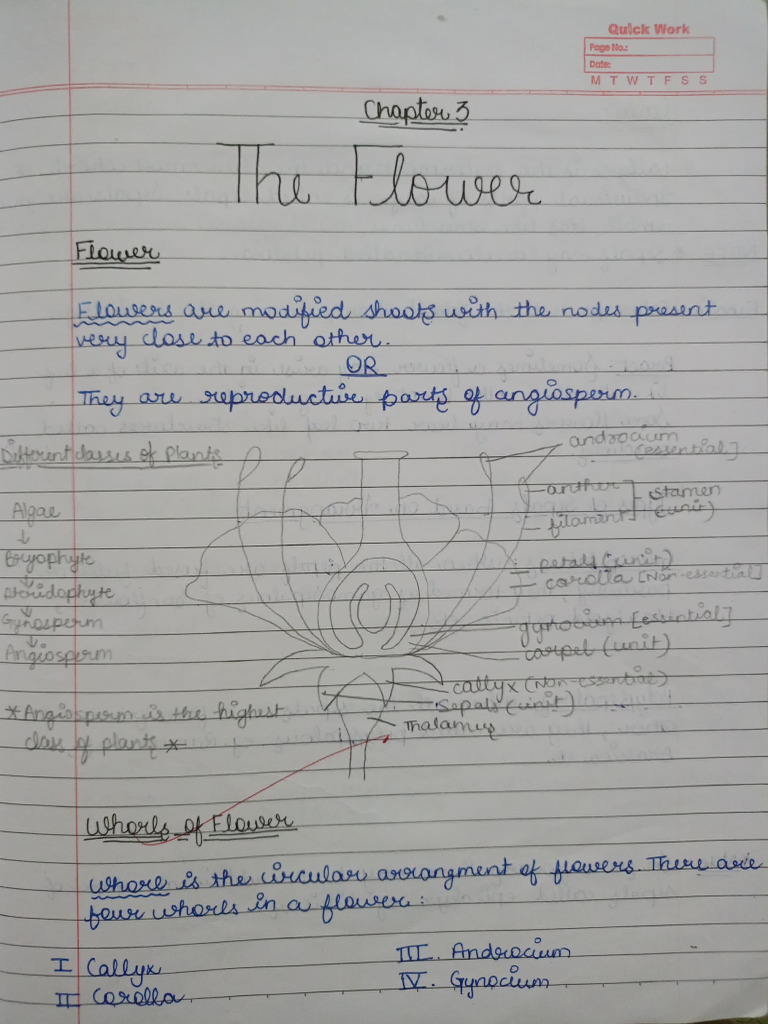 Quick Work
Page No.:
Date:
M T W T F S S
Chapter 3
The Flower
Flower
Flowers are modified shoots with the nodes present
very close to each other.
OR
They are reproductive parts of angiosperm.
Different classes of Plants
Algae
↓
Bryophyte
↓
Pteridophyte
↓
Gynosperm
↓
Angiosperm
*Angiosperm is the highest
class of plants *
androcium
[essential]
anther
filament
stamen
(unit)
petals (unit)
corolla [Non-essential]
gynocium [essential]
carpel (unit)
callyx (Non-essential)
Sepals (unit)
Thalamus
Whorls of Flower
Whore is the circular arrangment of flowers. There are
four whorls in a flower:
I Callyx
II Corolla
III. Androcium
IV. Gynocium